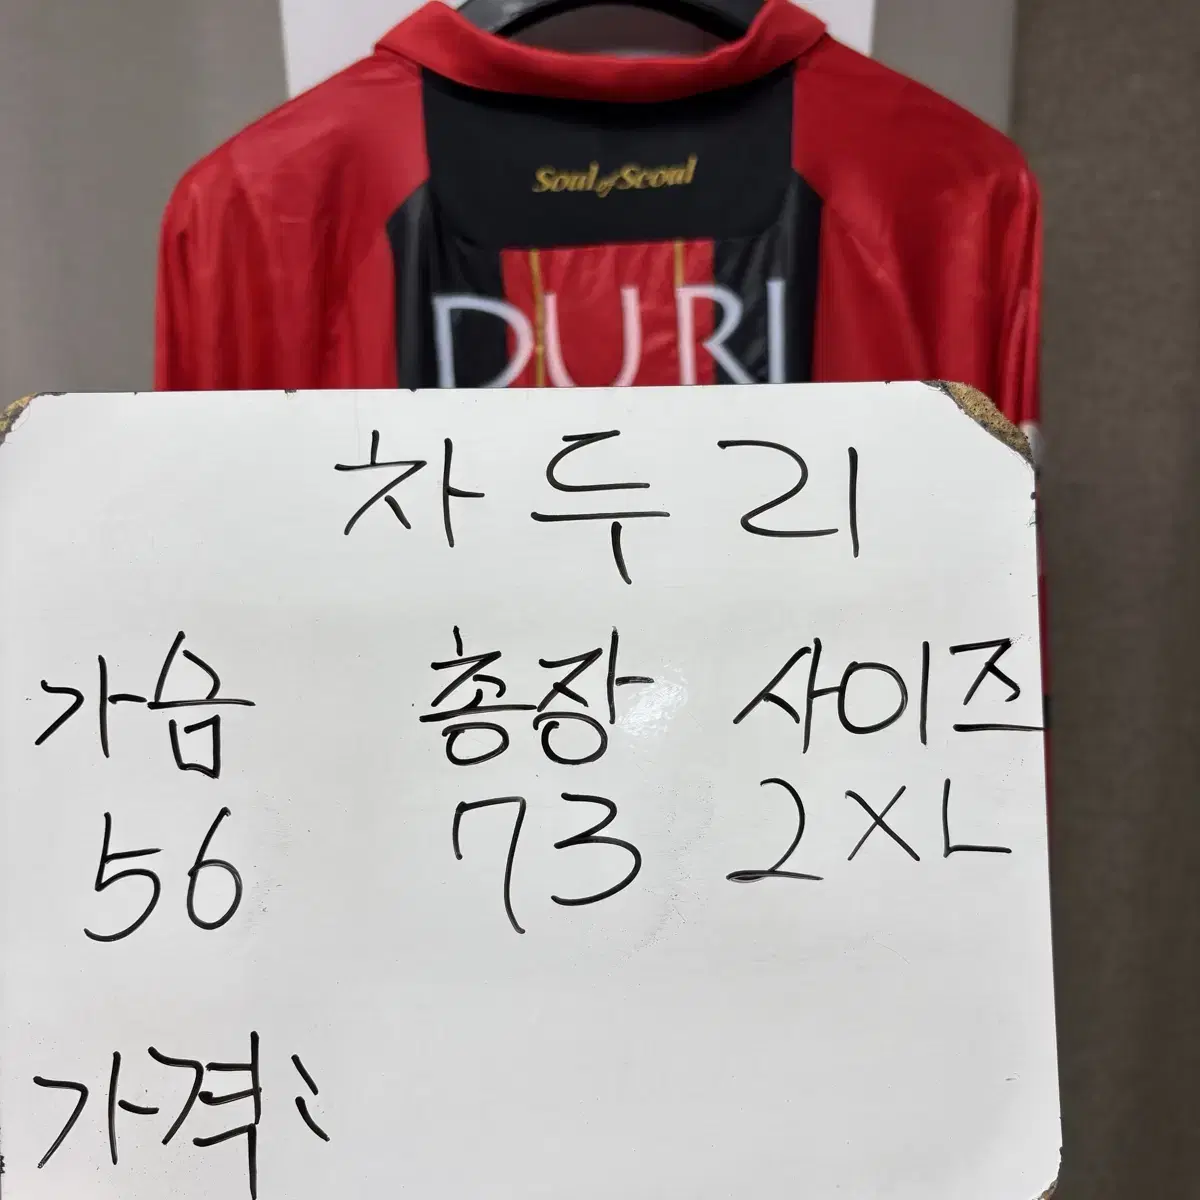 Soul of Seoul
DURI
차두리
가슴 총장 사이즈
56 73 2XL
가격: